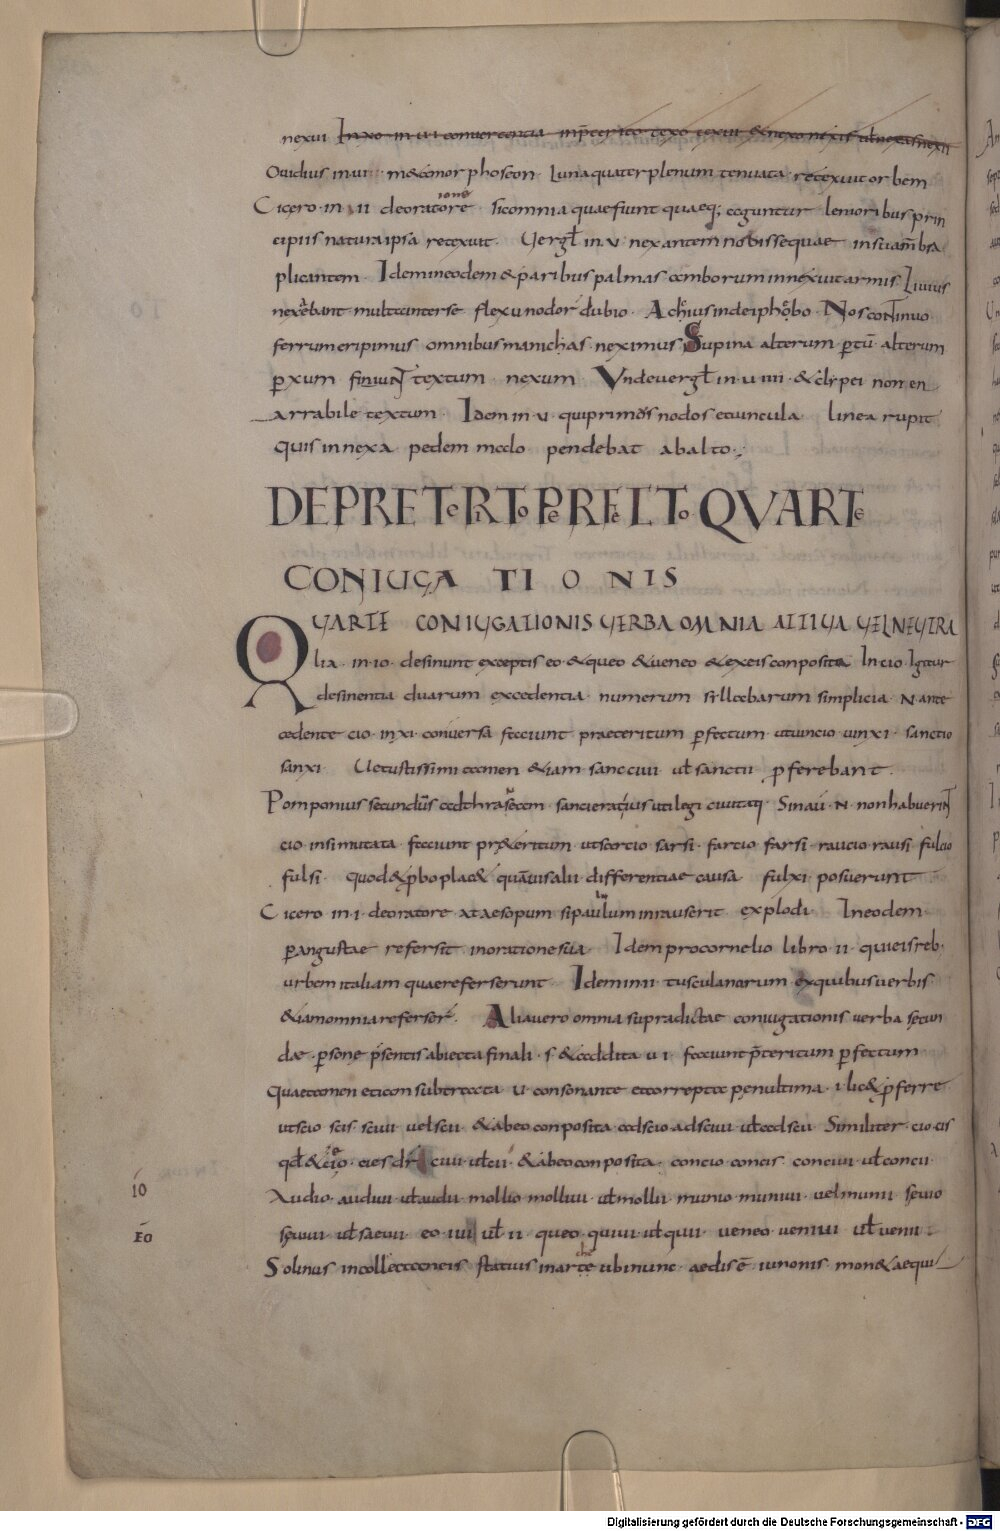 nexui In xo in ui conuertentia inp̄terito texo texui & nexo nexis ul̄ nexas nexui
Ouidius in ui m&amorphoseon · Luna quater plenum tenuata · retexuit orbem
Cicero · in · ii de oratore ione sicomnia quae fiunt quaeq; coguntur lemoribus prin
cipiis natura ipsa retexuit · Uergl̄ in · u · nexantem nobis seque in sua m̄bra
plicantem · Idem in eodem & paribus palmas amborum innexuit armis · Liuius
nexebant multa inter se flexu nodor̄ dubio · Achius in deiphobo · Nos continuo
ferrum eripimus omnibus manicas · neximus Supina alterum · p̱ tū · alterum
p̱ xum · finiunT textum · nexum · Unde uergl̄ in · uiiii · & clypei non en
arrabile textum · Idem in · u · qui primos nodos et uincula linea rupit
quis innexa pedem malo pendebat ab alto ·;
DE PRETERITO PERFECTO QVARTE
CONIUGATIONIS
QVARTE CONIUGATIONIS UERBA OMNIA ACTIUA UEL NEUTRA
lia · in · io · desinunt exceptis eo · & queo & ueneo & ex eis conposita In cio · Igitur
desinentia duarum excedentia numerum syllabarum simplicia · N ante
cedente cio · in xi · conuersa faciunt praeteritum p̱fectum · ut uincio uinxi · sancio
sanxi · Uetustissimi tamen &iam sanciui ul̄ sancii p̱ferebant ·
Pomponius secundus ad thraseam · sancierat ius utile gi ciuitati · Sin au̇ · N · non habuerinT
cio · in si mutata faciunt pr&eritum ut sarcio sarsi · farcio farsi · raucio rausi · fulcio
fulsi · quod & p̱bo plac& quāuis alii differentiae causa fulxi posuerunt
Cicero · in · i · de oratore · at aesopum si paulum inrauserit explodi · In eodem
p̱ angustae refersit in oratione sua · Idem pro cornelio libro · ii · qui eis reb;
urbem italiam quae referserunt · Idem in iii tusculanarum ex quibus uerbis
&iam omnia referser̄ · Alia uero omnia supradictae coniugationis uerba secun
dae · p̱sone p̄sentis abiecta finali · s · & addita ui · faciunt p̄teritum p̱fectum
quae tamen etiam subtracta u · consonante et correpta penultima · i lic& p̱ferre
ut scio scis sciui uel scii · & ab eo conposita adscio adsciui ul̄ adscii · Similiter · cio cis
qd̄ & cieo · cies dr̄ ciui ul̄ cii · & ab eo conposita · concio concis conciui ul̄ concii ·
Audio · audiui ul̄ audii · mollio molliui ul̄ mollii · munio muniui · uel munii · seuio
seuiui · ul̄ saeuii · eo iui ul̄ ii · queo quiui ul̄ quii · ueneo ueniui ul̄ uenii :
Solinus in collectaneis statius in arce ubi nunc aedis ē iunonis monetae qui
io
Eo